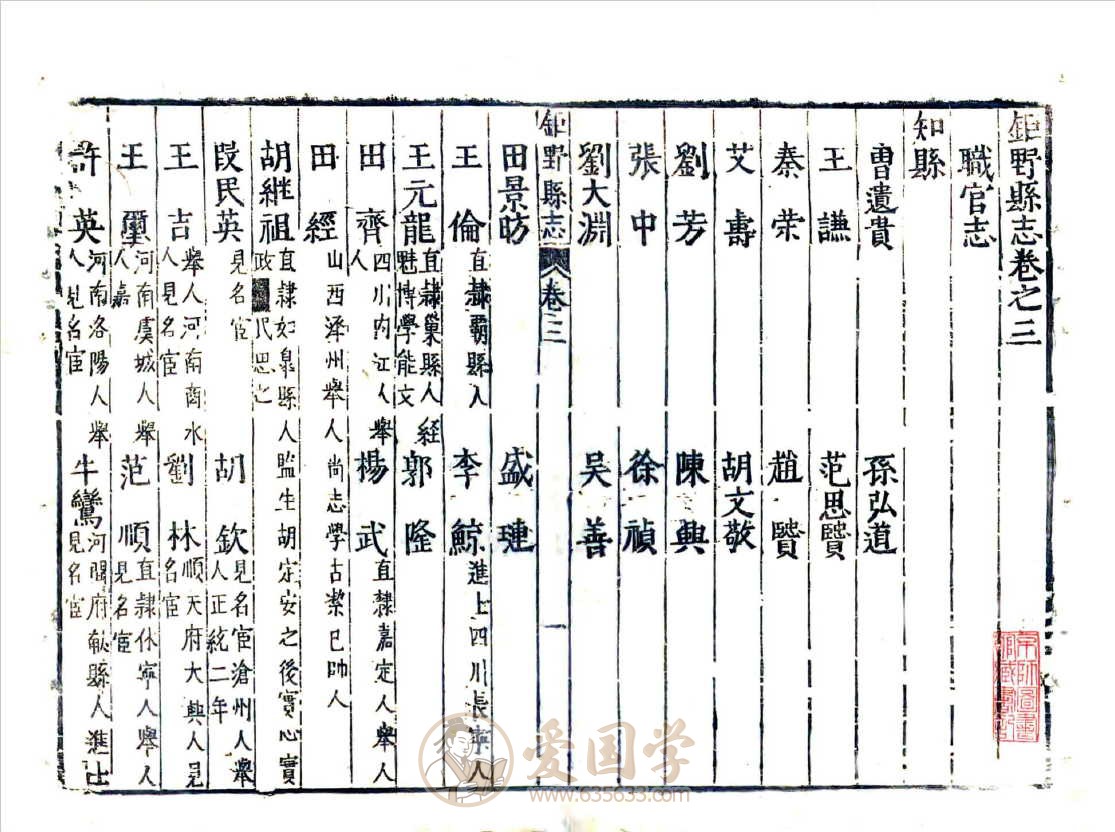 鉅野縣志卷之三
職官志
知縣
曹遺貴 孫弘道
王謙 范思賢
秦荣 趙賢
艾壽 胡文敬
劉芳 陳興
張中 徐禎
劉大淵 吴善
鉅野縣志 卷三 一
田景昉 盛璉
王倫 直隸霸縣人 李鯨 進士四川長寧人
王元龍 直隸巢縣人経魁博學能文 郭隆
田齊 四川内江人舉人 楊武 直隸嘉定人舉人
田經 山西泽州舉人尚志學古潔已帅人
胡继祖 直隸如皐縣人監生胡定安之後實心實政 民思之
段民英 見名宦 胡欽 見名宦滄州人舉人正統二年
王吉 舉人河南商水人見名宦 劉林 順天府大興人見名宦
王璽 河南虞城人舉人 范順 直隸休寧人舉人見名宦
許英 河南洛陽人舉人見名宦 牛鸞 河間府献縣人進士見名宦
爱国学
www.635633.com